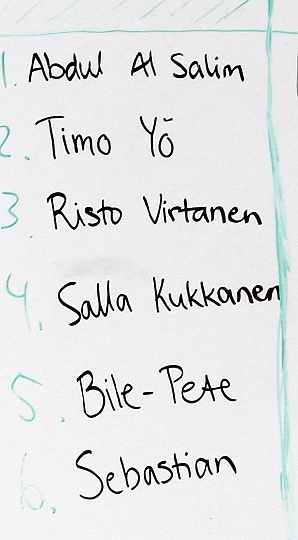 1. Abdul Al Salim
2. Timo Yö
3 Risto Virtanen
4. Salla Kukkanen
5. Bile-Pete
6. Sebastian